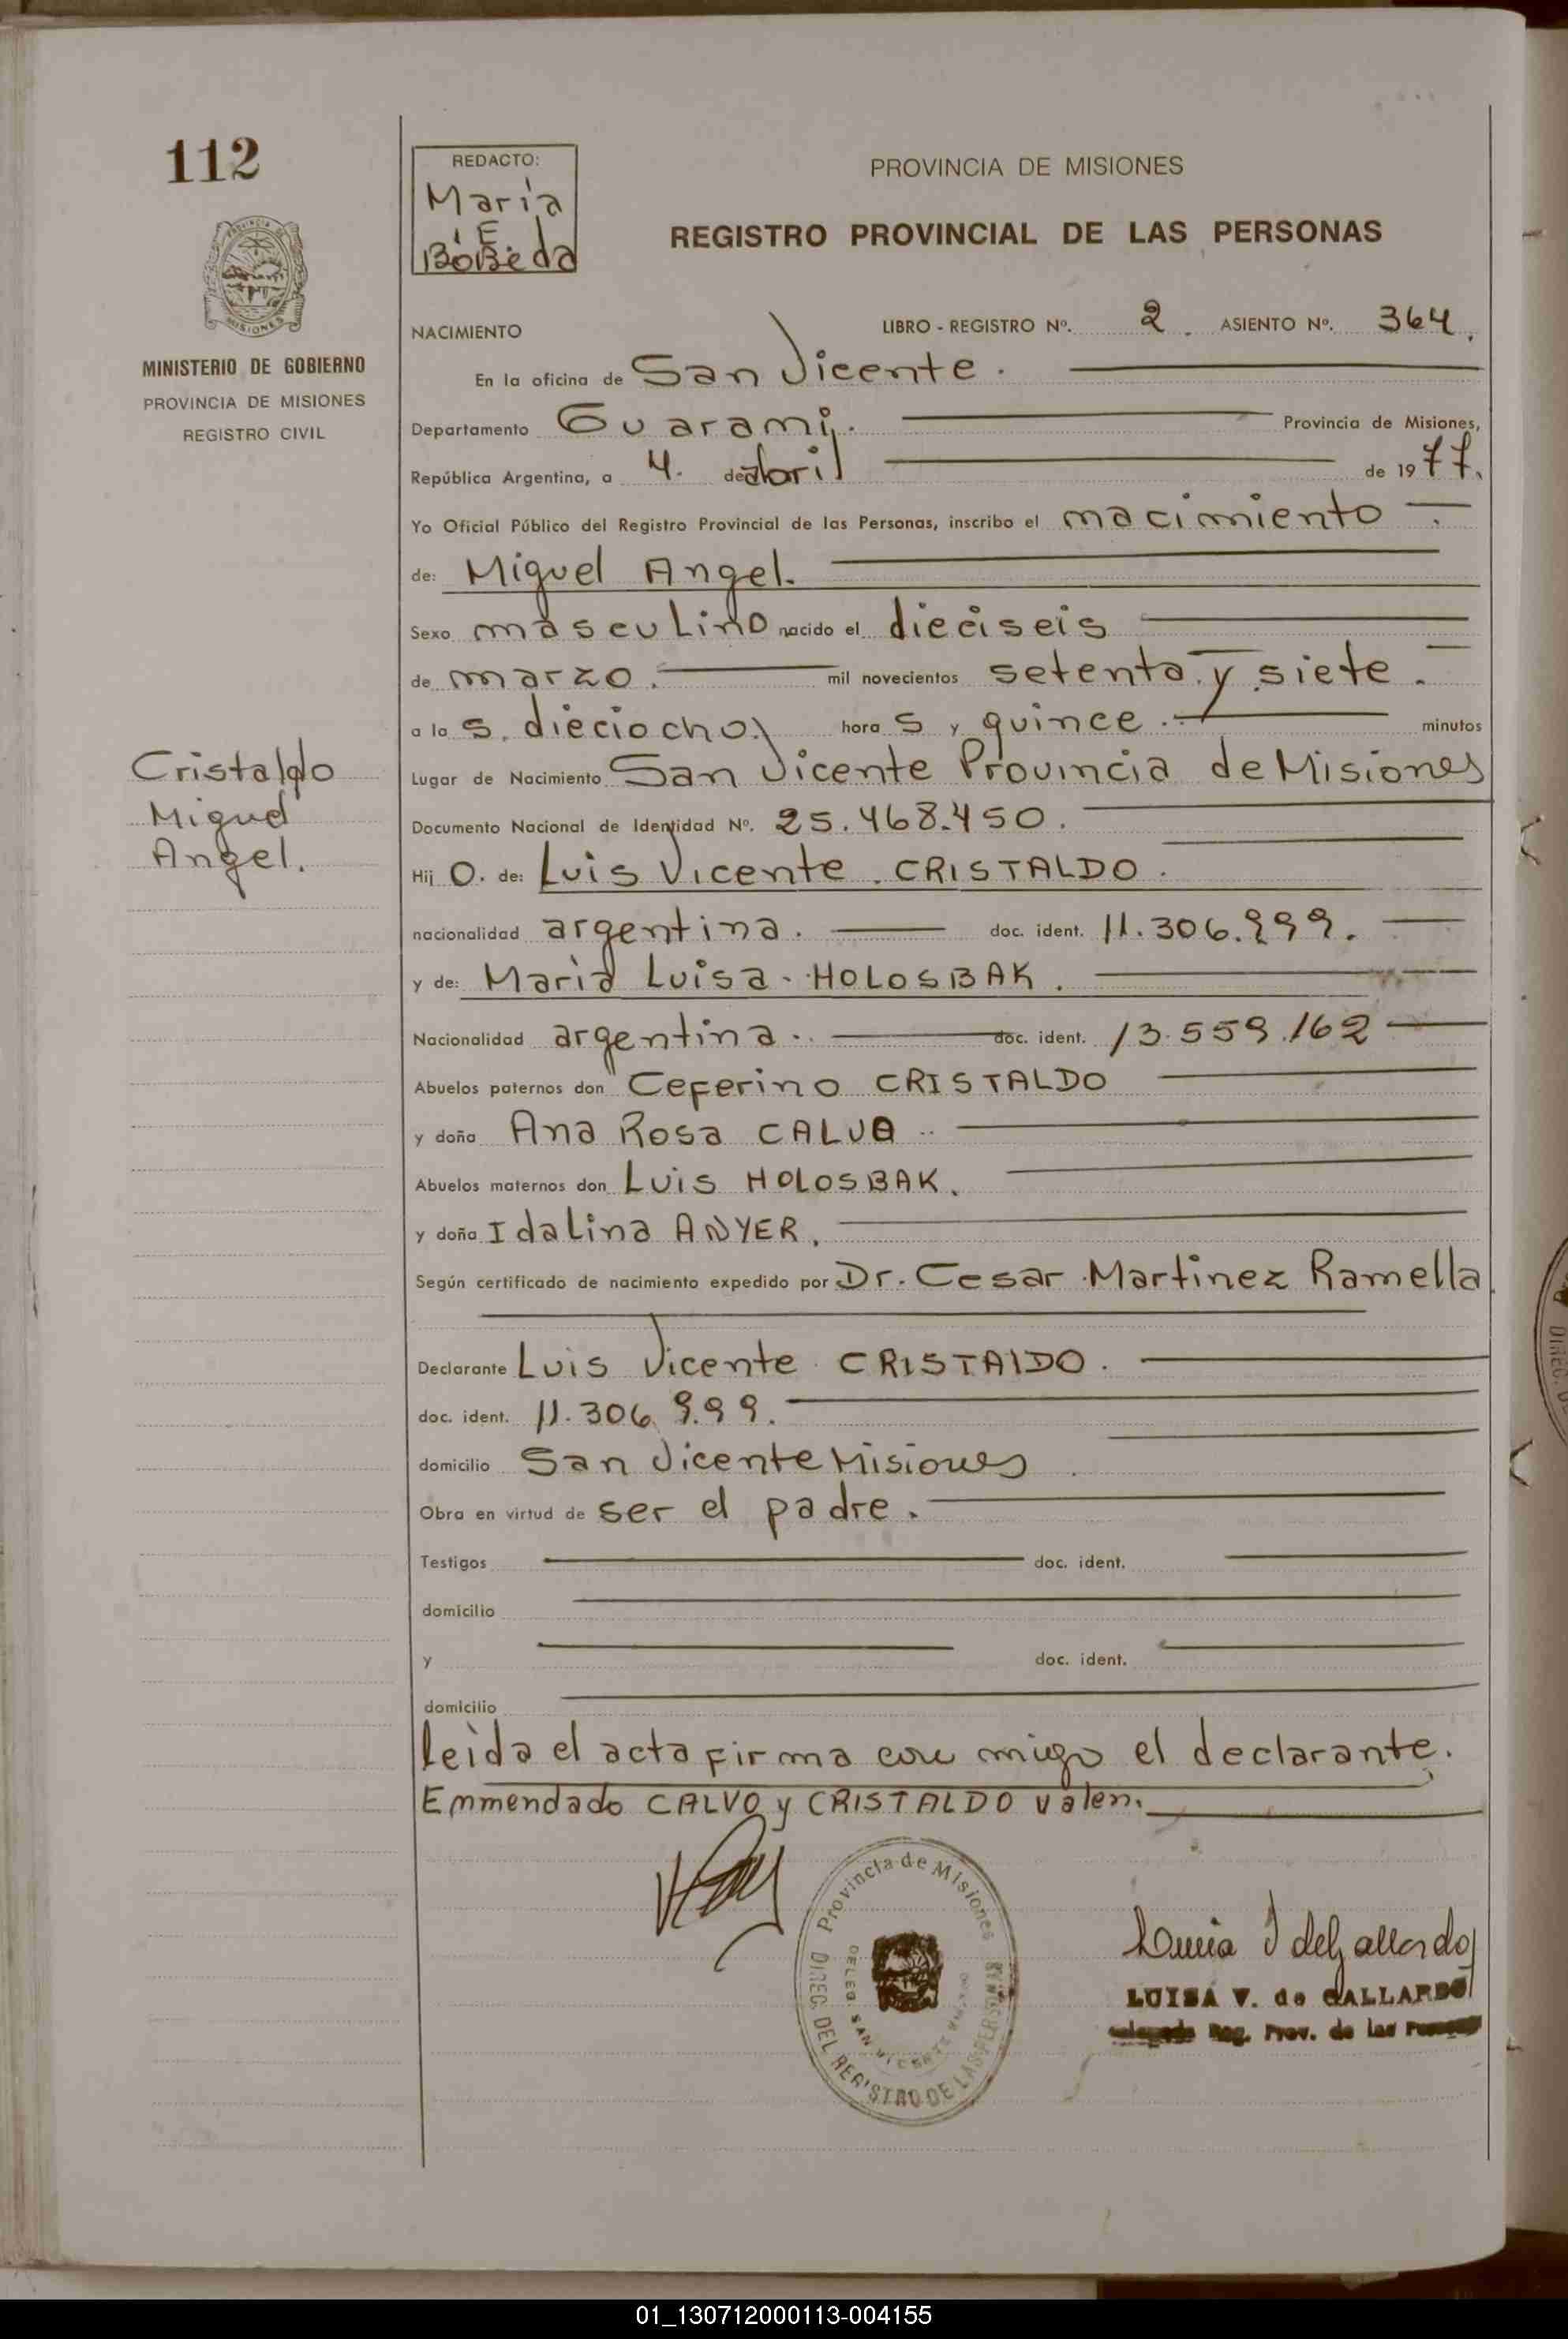 112
PROVINCIA DE
MISIONES
MINISTERIO DE GOBIERNO
PROVINCIA DE MISIONES
REGISTRO CIVIL
Cristaldo
Miguel
Angel.
REDACTO:
Maria
E.
BoBeda
PROVINCIA DE MISIONES
REGISTRO PROVINCIAL DE LAS PERSONAS
NACIMIENTO LIBRO - REGISTRO Nº. 2. ASIENTO Nº. 364.
En la oficina de San Vicente.
Departamento Guarami. Provincia de Misiones,
República Argentina, a 4. de abril de 1977.
Yo Oficial Público del Registro Provincial de las Personas, inscribo el macimiento
de: Miguel Angel.
Sexo masculino nacido el dieciseis
de marzo. mil novecientos setenta y siete.
a la s. dieciocho hora s y quince. minutos
Lugar de Nacimiento San Vicente Provincia de Misiones
Documento Nacional de Identidad Nº. 25.468.450.
Hij o. de: Luis Vicente CRISTALDO.
nacionalidad argentina. doc. ident. 11.306.999.
y de: Maria Luisa HOLOSBAK.
Nacionalidad argentina. doc. ident. 13.559.162
Abuelos paternos don Ceferino CRISTALDO
y doña Ana Rosa CALVO
Abuelos maternos don Luis HOLOSBAK.
y doña Idalina ANYER.
Según certificado de nacimiento expedido por Dr. Cesar Martinez Ramella
Declarante Luis Vicente CRISTALDO.
doc. ident. 11.306.999.
domicilio San Vicente Misiones
Obra en virtud de ser el padre.
Testigos doc. ident.
domicilio
y doc. ident.
domicilio
leida el acta firma con migo el declarante.
Emmendado CALVO y CRISTALDO valen.
Provincia de Misiones
DIREC. DEL REGISTRO DE LAS PERSONAS
DELEG. SAN VICENTE
de Gallardo
LUISA V. de GALLARDO
Reg. Prov. de las
01_130712000113-004155